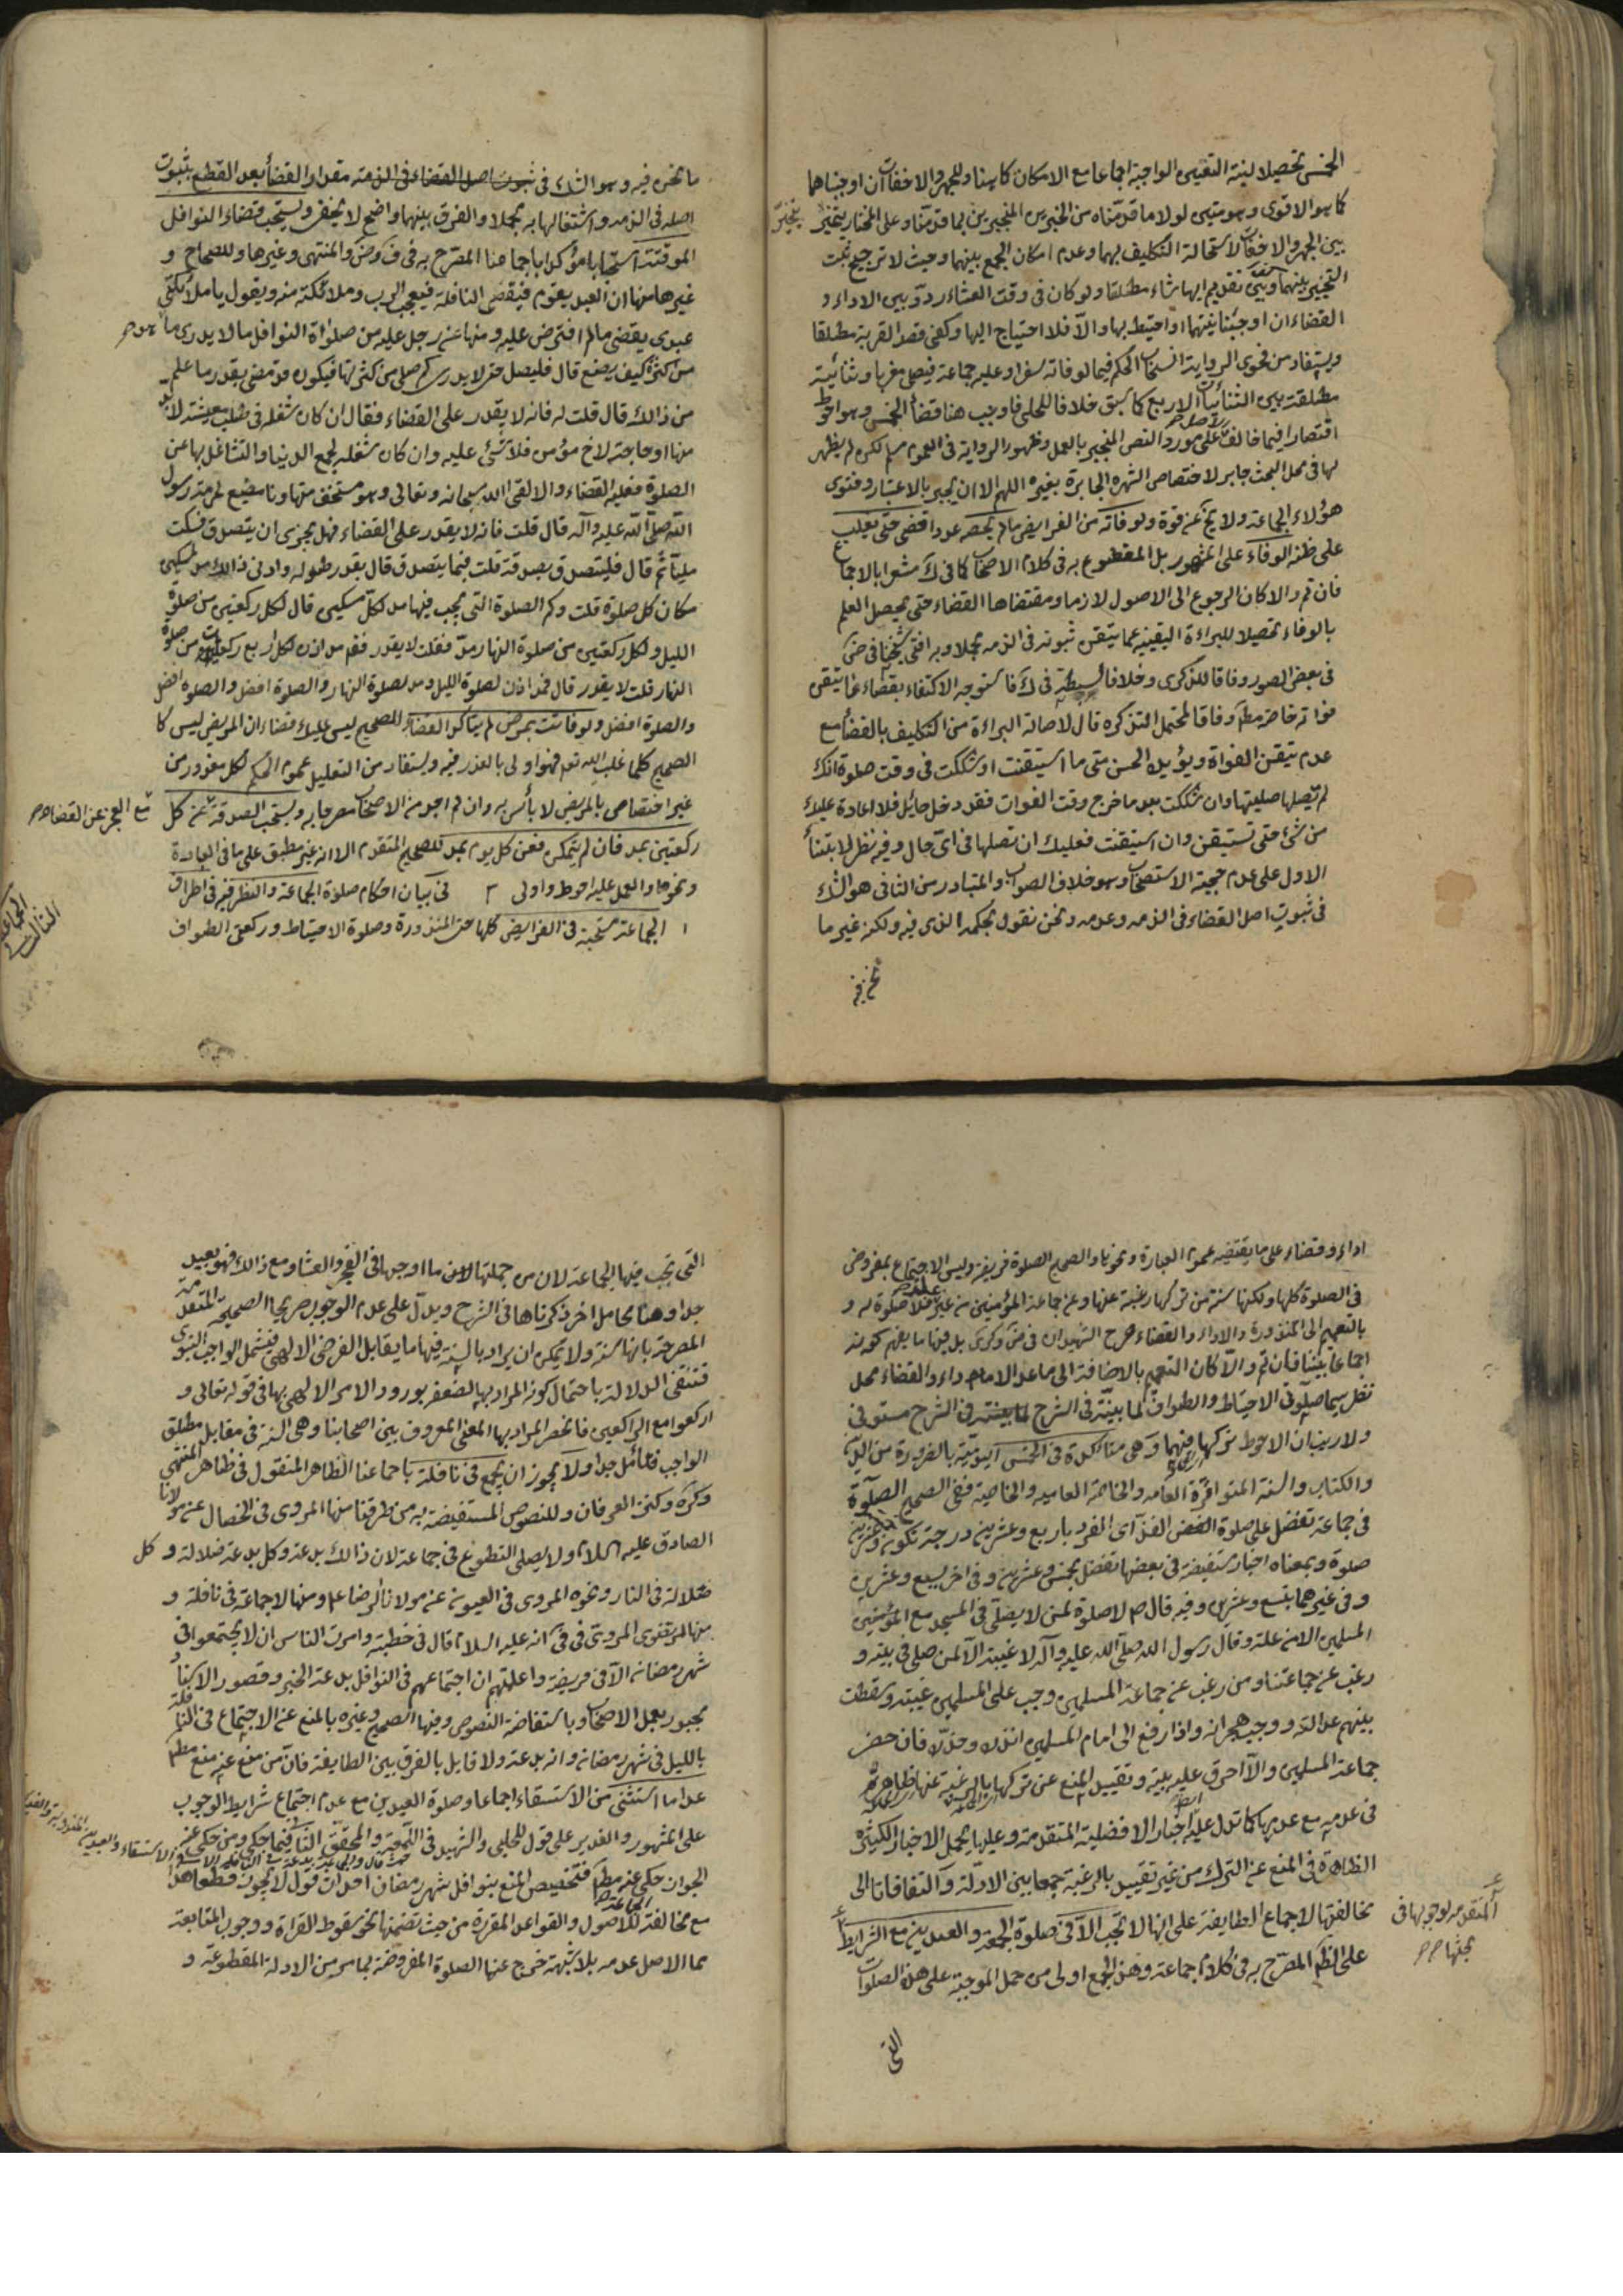 الخمس تحصيلا لنية التعيين الواجبة اجماعا مع الامكان كما هنا وللجهر والاخفات ان اوجبناهما
كما هو الاقوى وهو متين لولا ما قدمناه من الخبرين المنجبرين بما قدمنا وعلى المختار يتخير
بين الجهر والاخفات لاستحالة التكليف بهما وعدم امكان الجمع بينهما وحيث لا ترجيح ثبت
التخيير بينهما تقديم ايهما شاء مطلقا ولو كان في وقت العشاء ردد بين الاداء و
القضاء ان اوجبنا نيتهما او احتيط بها والا فلا احتياج اليها وكفى قصد القربة مطلقا
ويستفاد من فحوى الرواية انسحاب الحكم فيما لو فاته سفرا وعليه جماعة فيصلي مغربا وثنائية
مطلقة بين الثنائيات الاربع كما سبق خلافا للحلي فاوجب هنا قضاء الخمس وهو احوط
اقتصارا فيما خالف الاصل على مورد النص المنجبر بالعمل وظهور الرواية في العموم مسلم لكن لم يظهر
لها في محل البحث جابر لاختصاص الشهرة الجابرة بغيره اللهم الا ان يجبر بالاعتبار وفتوى
هؤلاء الجماعة ولا يخ عن قوة ولو فاته من الفرايض ما لم يحصه عددا قضى حتى يغلب
على ظنه الوفاء على المشهور بل المقطوع به في كلام الاصحاب كما في ك مشعرا بالاجماع
فان تم والا كان الرجوع الى الاصول لازما ومقتضاها القضاء حتى يحصل العلم
بالوفاء تحصيلا للبراءة اليقينية عما تيقن ثبوته في الذمة مجملا وبه افتى شيخنا في ض
في بعض الصور وفاقا للذكرى وخلافا لسبطه في ك فاستوجه الاكتفاء بقضاء ما تيقن
فواته خاصة مط وفاقا لمحتمل التذكرة قال لاصالة البراءة من التكليف بالقضاء مع
عدم تيقن الفوات ويؤيده الحسن متى ما استيقنت او شككت في وقت صلوة انك
لم تصلها صليتها وان شككت بعد ما خرج وقت الفوات فقد دخل حائل فلا اعادة عليك
من شئ حتى تستيقن وان استيقنت فعليك ان تصليها في اي حال وفيه نظر لابتناء
الاول على عدم حجية الاستصحاب وهو خلاف الصواب والمتبادر من الثاني هو الشك
في ثبوت اصل القضاء في الذمة وعدمه ونحن نقول بحكمه الذي فيه ولكنه غير ما
نحن فيه
يتخير
ما نحن فيه وهو الشك في ثبوت اصل القضاء في الذمة مقدار القضاء بعد القطع بثبوت
اصله في الذمة واشتغالها به مجملا والفرق بينهما واضح لا يخفى ويستحب قضاء النوافل
الموقتة استحبابا مؤكدا باجماعنا المصرح به في ف وض والمنتهى وغيرها وللصحاح و
غيرها منها ان العبد يقوم فيقضى النافلة فيعجب الرب وملائكته منه ويقول يا ملائكتي
عبدي يقضي ما لم افترض عليه ومنها عن رجل عليه من صلوة النوافل ما لا يدري ما هو
من كثرته كيف يصنع قال فليصل حتى لا يدري كم صلى من كثرتها فيكون قد قضى بقدر ما علم
من ذلك قال قلت له فانه لا يقدر على القضاء فقال ان كان شغله في طلب معيشة لا بد
منها او حاجة لاخ مؤمن فلا شئ عليه وان كان شغله لجمع الدنيا والتشاغل بها عن
الصلوة فعليه القضاء والا لقى الله سبحانه وتعالى وهو مستخف متهاونا مضيع لحرمة رسول
الله صلى الله عليه وآله قال قلت فانه لا يقدر على القضاء فهل يجزى ان يتصدق فسكت
مليا ثم قال فليتصدق بصدقة قلت فبما يتصدق قال بقدر طوله وادنى ذلك مد لمسكين
مكان كل صلوة قلت وكم الصلوة التي يجب فيها مد لكل مسكين قال لكل ركعتين من صلوة
الليل ولكل ركعتين من صلوة النهار مد فقلت لا يقدر فقال مد اذن لكل اربع ركعات من صلوة
النهار قلت لا يقدر قال فمد اذن لصلوة الليل ومد لصلوة النهار والصلوة افضل والصلوة افضل
والصلوة افضل ولو فاتت بمرض لم يتاكد القضاء للصحيح ليس عليك قضاء ان المريض ليس كا
الصحيح كلما غلب الله تع فهو اولى بالعذر فيه ويستفاد من التعليل عموم الحكم لكل معذور من
غير اختصاص بالمريض لا بأس به وان لم اجد من الاصحاب مصرحا به ويستحب الصدقة عن كل
مع العجز عن القضاء
ركعتين بمد فان لم يتمكن فعن كل يوم بمد للصحيح المتقدم الا انه غير منطبق على ما في العبارة
ونحوها والعمل عليه احوط واولى ٣ في بيان احكام صلوة الجماعة والنظر فيه في اطراف
١ الجماعة مستحبة في الفرايض كلها حتى المنذورة وصلوة الاحتياط وركعتي الطواف
الثالث
الجماعة
اداء وقضاء على ما يقتضيه عموم العبارة ونحوها والصحيح الصلوة فريضة وليس الاجتماع بمفروض
في الصلوة كلها ولكنها سنة من تركها رغبة عنها وعن جماعة المؤمنين من غير علة فلا صلوة له و
بالتعميم الى المنذورة والاداء والقضاء صرح الشهيدان في ض وكرى بل فيها ما يفهم كونه
اجماعا بيننا فان تم والا كان التعميم بالاضافة الى ما عدا الاداء والقضاء محل
نظر سيما صلوتي الاحتياط والطواف لما بينته في الشرح مستوفى
ولا ريب ان الاحوط تركها فيهما وهي متاكدة في الخمس اليومية بالضرورة من الدين
والكتاب والسنة المتواترة العامية والخاصية ففي الصحيح الصلوة
في جماعة تفضل على صلوة الفرد باربع وعشرين درجة تكون خمسة وعشرين
صلوة وبمعناه اخبار مستفيضة في بعضها تفضل بخمس وعشرين وفي اخر بسبع وعشرين
وفي غيرهما بتسع وعشرين وفيه قال ص لا صلوة لمن لا يصلي في المسجد مع المؤمنين
المسلمين الا من علة وقال رسول الله صلى الله عليه وآله لا غيبة الا لمن صلى في بيته و
رغب عن جماعتنا ومن رغب عن جماعة المسلمين وجب على المسلمين غيبته وسقطت
بينهم عدالته ووجب هجرانه واذا رفع الى امام المسلمين انذره وحذره فان حضر
جماعة المسلمين والا احرق عليه بيته وتقييد المنع عن تركها بالرغبة عنها ظاهرة
في عدمه مع عدمها كما تدل عليه ايضا اخبار الافضلية المتقدمة وعليها يحمل الاخبار الكثيرة
الظاهرة في المنع عن الترك من غير تقييد بالرغبة جمعا بين الادلة والتفاتا الى
مخالفتها لاجماع الطايفة على انها لا تجب الا في صلوة الجمعة والعيدين مع الشرايط
المتقدمة لوجوبها في بحثها
على النظم المصرح به في كلام جماعة وهذا الجمع اولى من حمل الموجبة على هذه الصلوات
التي
التي تجب فيها الجماعة لان من جملتها ما اوجبها في الفجر والعشاء ومع ذلك فهو بعيد
جدا وهنا محامل اخر ذكرناها في الشرح ويدل على عدم الوجوب صريحا الصحيحة المتقدمة
المصرحة بانها سنة ولا يمكن ان يراد بالسنة فيها ما يقابل الفرض الالهي فيشمل الواجب النبوي
فتنتفي الدلالة باحتمال كونه المراد بها لضعفه بورود الامر الالهي بها في قوله تعالى و
اركعوا مع الراكعين فانحصر المراد بها المعنى المعروف بين اصحابنا وهي السنة في مقابل مطلق
الواجب فتأمل جدا ولا يجوز ان يجمع في نافلة باجماعنا الظاهر المنقول في ظاهر المنتهى
وكرة وكنز العرفان وللنصوص المستفيضة به من طرقنا منها المروى في الخصال عن مولانا
الصادق عليه السلام ولا يصلى التطوع في جماعة لان ذلك بدعة وكل بدعة ضلالة وكل
ضلالة في النار ونحوه المروى في العيون عن مولانا الرضا ع ومنها لا جماعة في نافلة و
منها المرتضوى المروى في في انه عليه السلام قال في خطبته وامرت الناس ان لا يجتمعوا في
شهر رمضان الا في فريضة واعلمتهم ان اجتماعهم في النوافل بدعة الخبر وقصور الاسناد
مجبور بعمل الاصحاب وباستفاضة النصوص وفيها الصحيح وغيره بالمنع عن الاجتماع في النافلة
بالليل في شهر رمضان وانه بدعة ولا قايل بالفرق بين الطايفة فان من منع عنه منع مطلقا
عدا ما استثنى من الاستسقاء اجماعا وصلوة العيدين مع عدم اجتماع شرايط الوجوب
على المشهور والغدير على قول للحلبي والشهيد في اللمعة والمحقق الثاني فيما حكى ومن حكى عنه
الجواز حكى عنه مط فتخصيص المنع بنوافل شهر رمضان احداث قول لا يجوز قطعا هذا
مع مخالفة الجماعة للاصول والقواعد المقررة من حيث تضمنها نحو سقوط القراءة ووجوب المتابعة
مما الاصل عدمه بلا شبهة خرج عنها الصلوة المفروضة بما مر من الادلة المقطوعة و